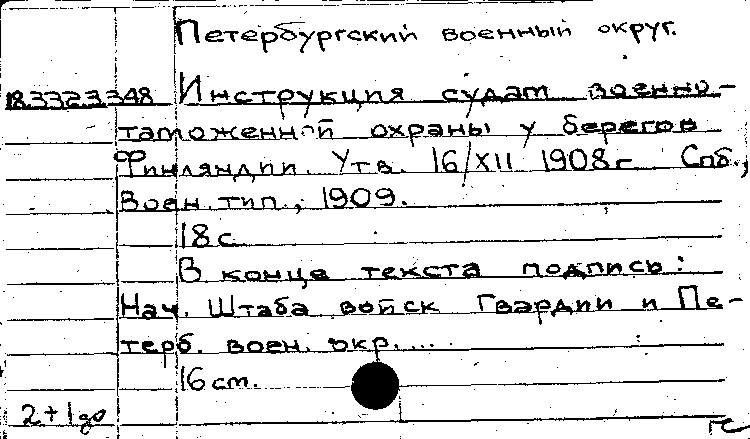 Петербургский военный округ.
18.3323.348 Инструкция судам военно-
таможенной охраны у берегов
Финляндии. Утв. 16/XII 1908г. Спб.,
Воен. тип., 1909.
18с.
В конце текста подпись:
Нач. Штаба войск Гвардии и Пе-
терб. воен. окр....
16 cm.
2+1 до